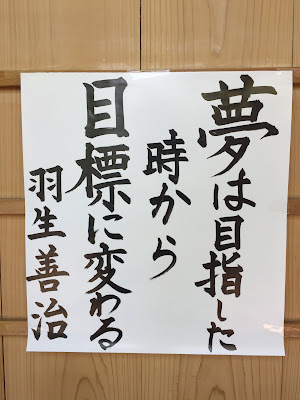 夢は目指した
時から
目標に変わる
羽生善治